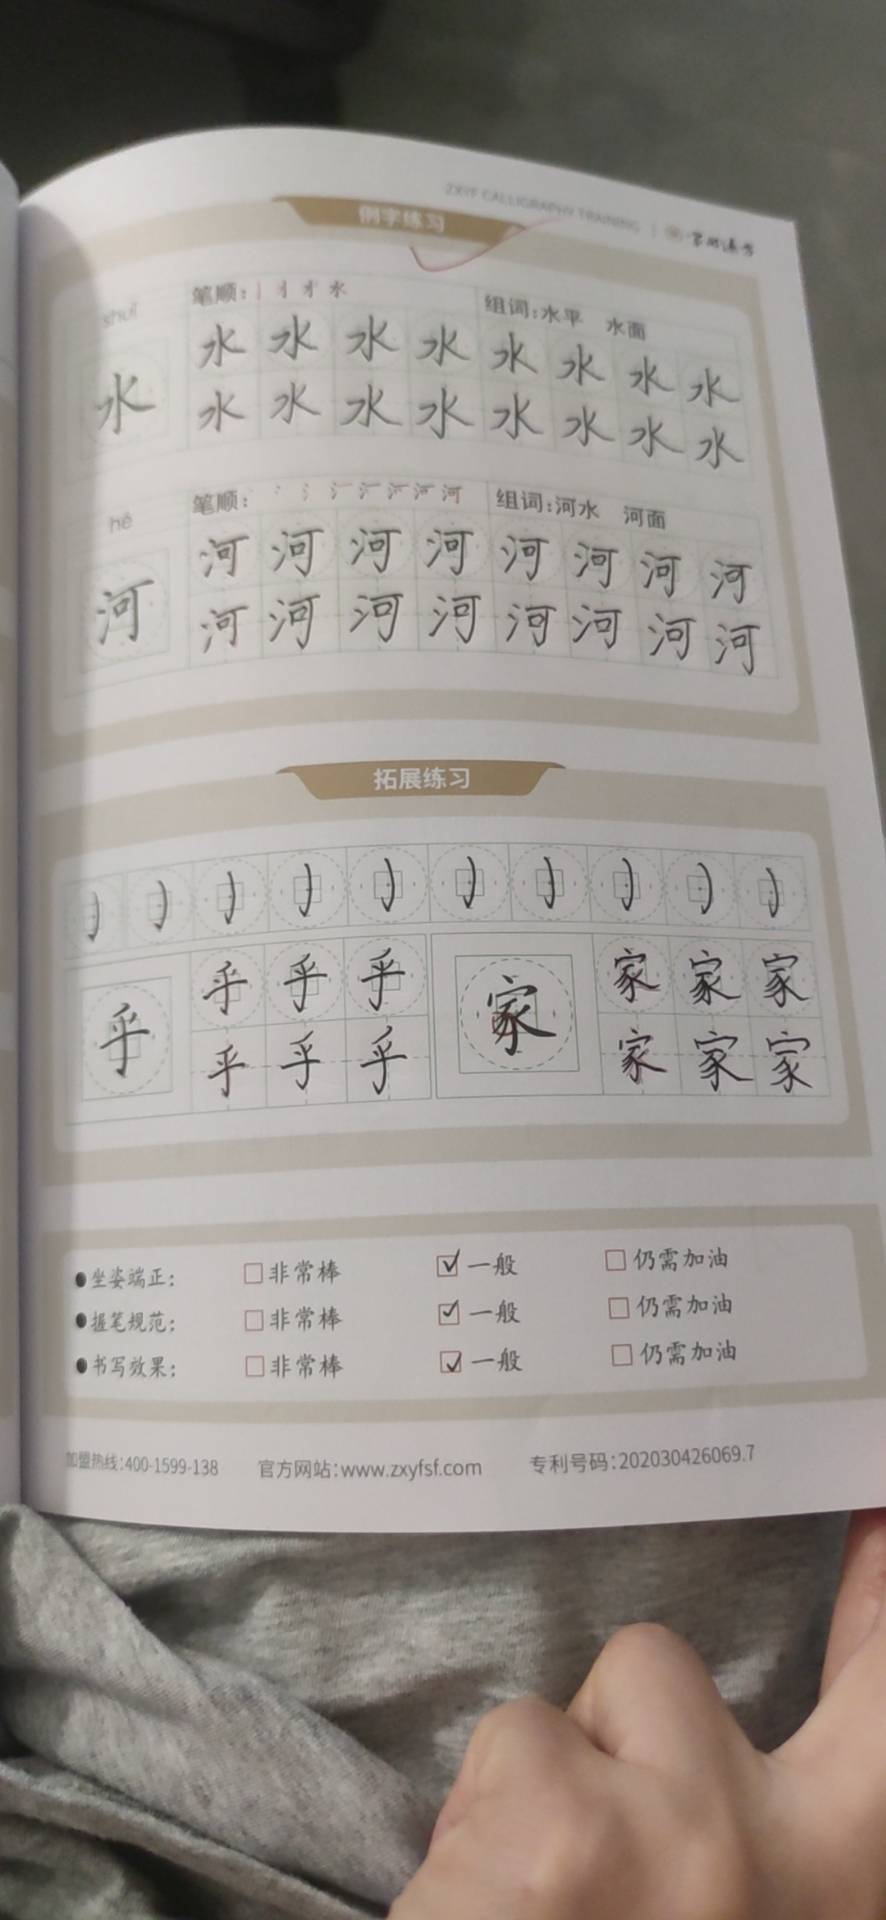 ZXYF CALLIGRAPHY TRAINING
例字练习
shuǐ
笔顺: 水
组词:水平 水面
水 水 水 水 水 水 水 水 水
水 水 水 水 水 水 水 水
hé
笔顺: 河
组词:河水 河面
河 河 河 河 河 河 河 河 河
河 河 河 河 河 河 河 河
拓展练习
亅 亅 亅 亅 亅 亅 亅 亅 亅 亅
乎 乎 乎 乎 家 家 家 家
乎 乎 乎 家 家 家
●坐姿端正: □非常棒 ☑一般 □仍需加油
●握笔规范: □非常棒 ☑一般 □仍需加油
●书写效果: □非常棒 ☑一般 □仍需加油
加盟热线:400-1599-138 官方网站:www.zxyfsf.com 专利号码:202030426069.7